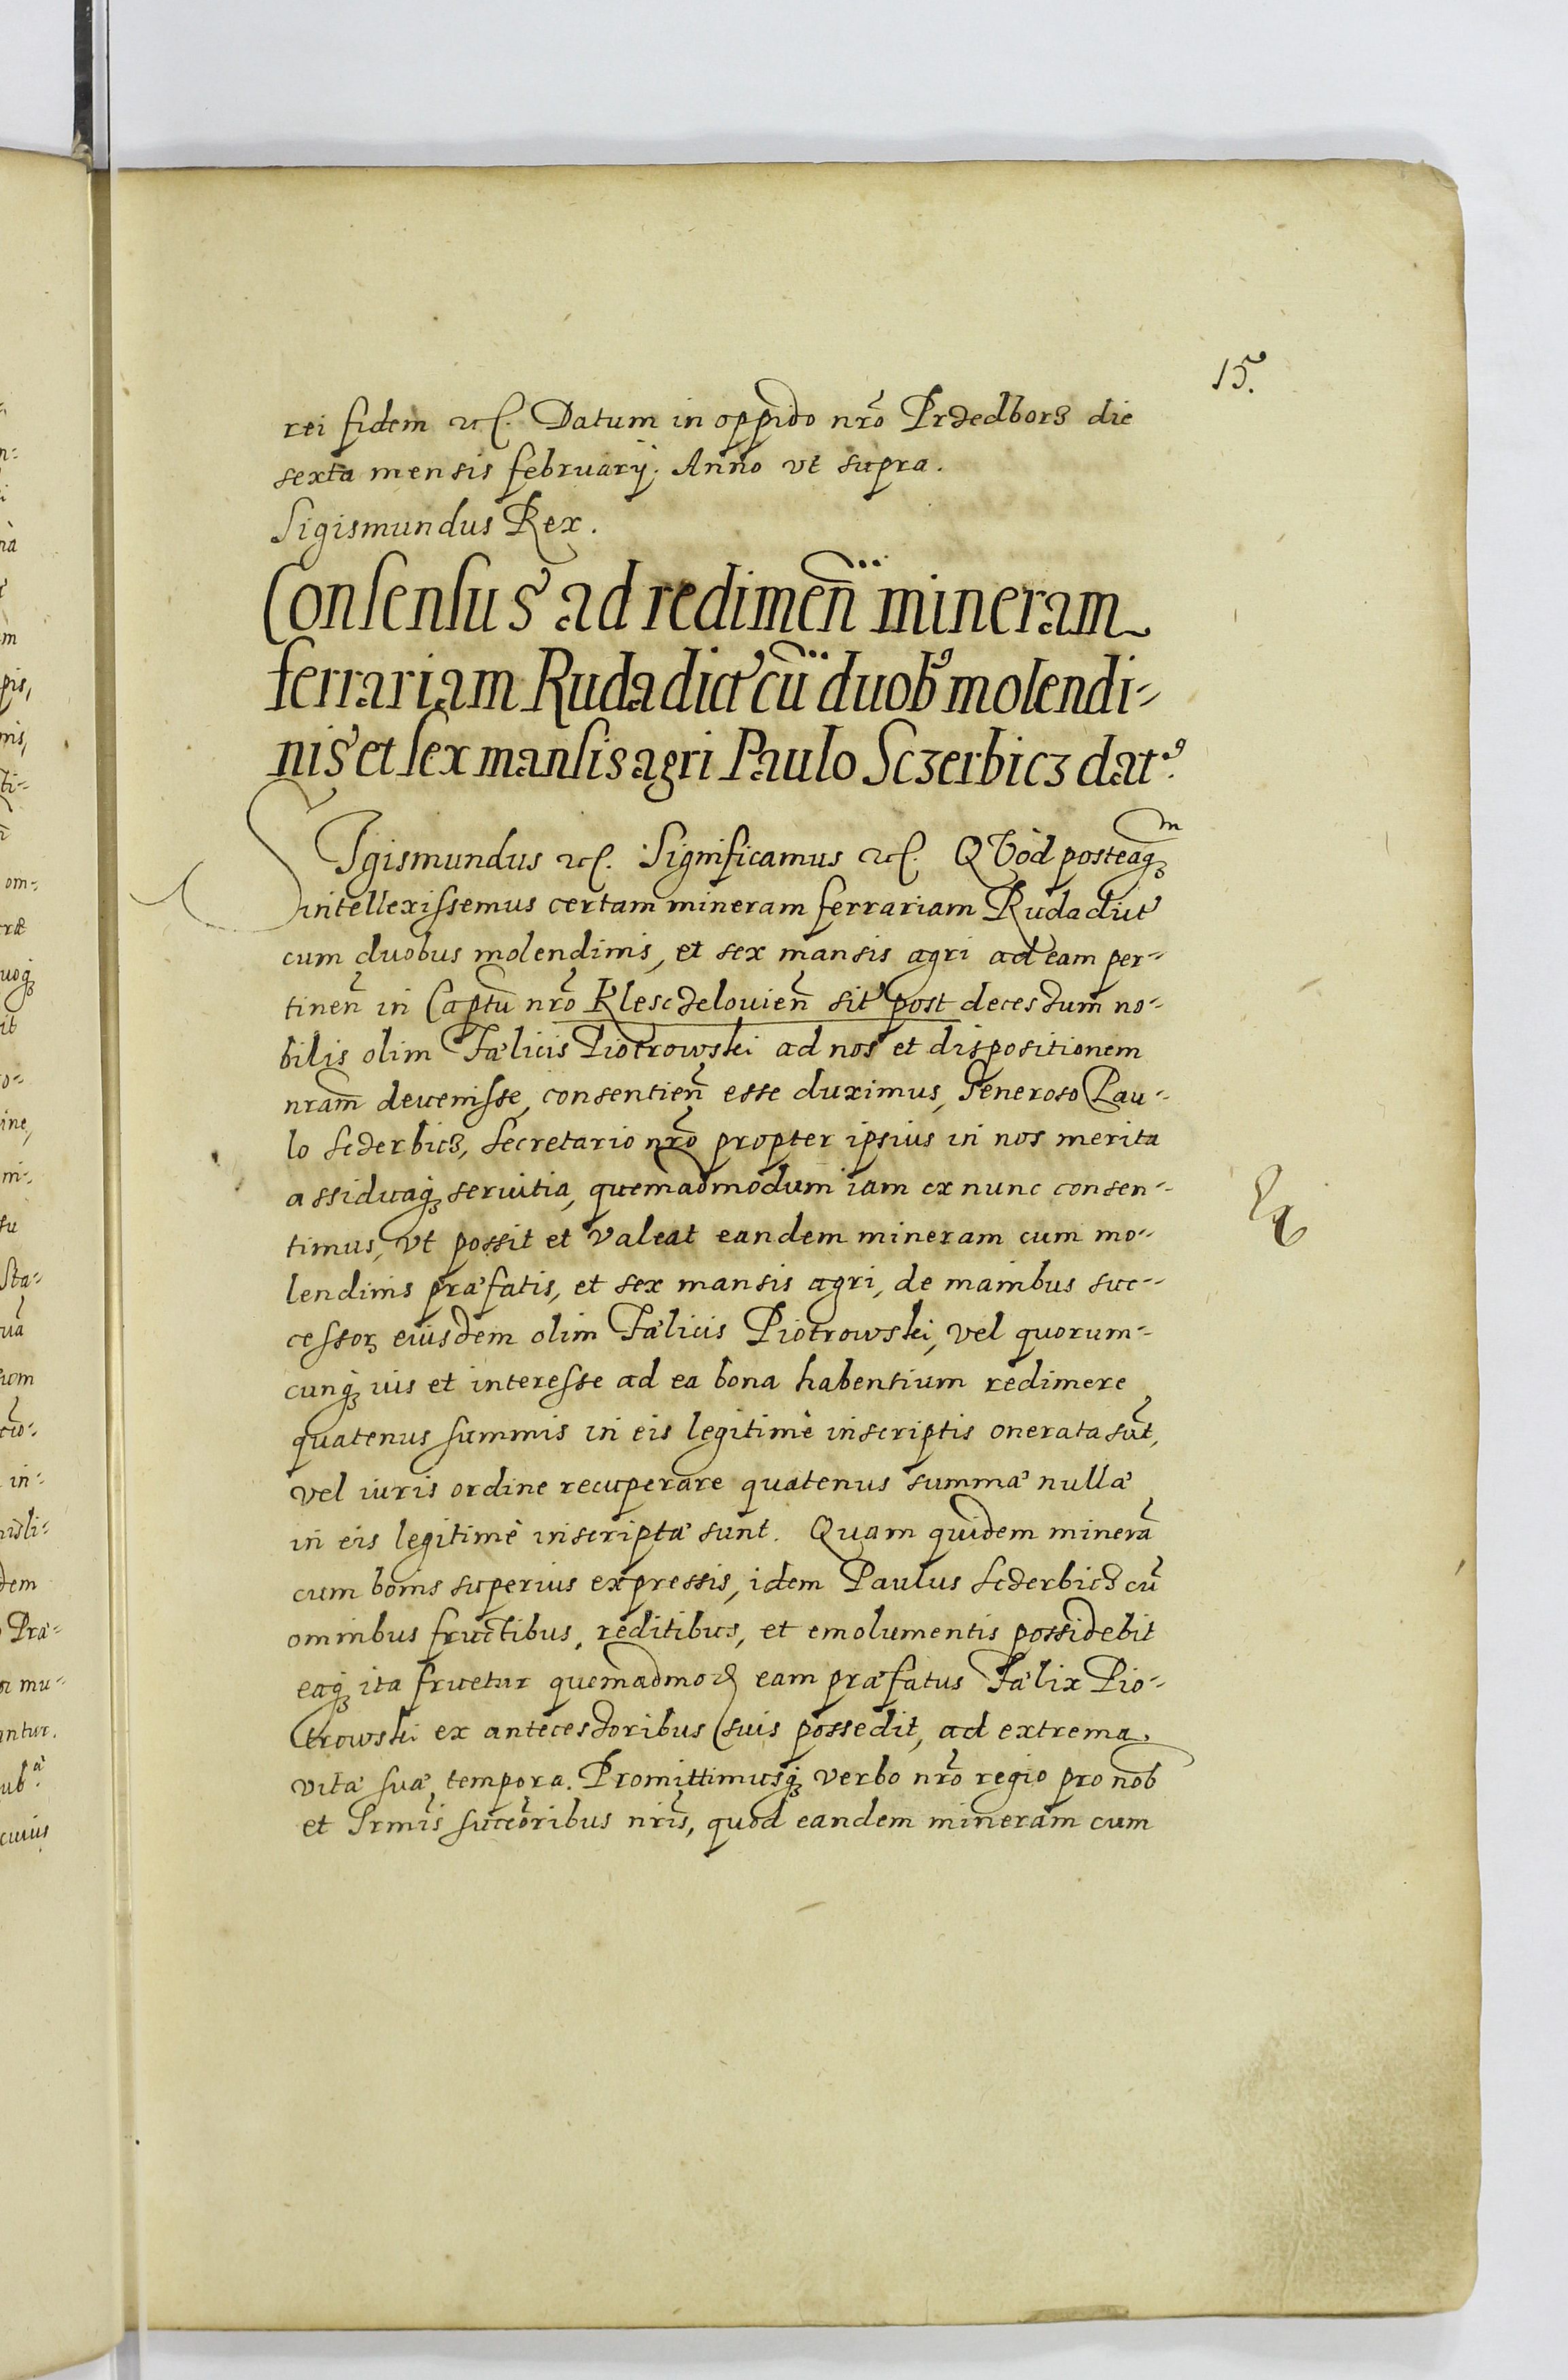 15.
rei fidem etc. Datum in oppido nrõ Przedborz die
sexta mensis februarij. Anno vt supra.
Sigismundus Rex.
Consensus ad redimen̄ mineram
ferrariam Ruda dict' cũ duob9 molendi-
nis et sex mansis agri Paulo Sczerbicz dat9.
SIgismundus etc. Significamus etc. QVòd posteaqꝫm
intellexissemus certam mineram ferrariam Ruda dict'
cum duobus molendinis, et sex mansis agri ad eam per-
tinen̄ in Captũ nrõ Klesczelouien̄ sit' post decessum no-
bilis olim Fælicis Piotrowski ad nos et dispositionem
nram̃ deuenisse, consentien̄ esse duximus, Generoso Pau-
lo Sczerbicz, Secretario nrõ propter ipsius in nos merita
assiduaqꝫ seruitia, quemadmodum iam ex nunc consen-
timus, vt possit et valeat eandem mineram cum mo-
lendinis præfatis, et sex mansis agri, de manibus suc-
cessorꝝ eiusdem olim Fælicis Piotrowski, vel quorum-
cunqꝫ ius et interesse ad ea bona habentium redimere
quatenus summis in eis legitimè inscriptis onerata sũt,
vel iuris ordine recuperare quatenus summæ nullæ
in eis legitimè inscriptæ sunt. Quam quidem minerã
cum bonis superius expressis, idem Paulus Sczerbicz cũ
omnibus fructibus, reditibus, et emolumentis possidebit
eaqꝫ ita fruetur quemadmod eam præfatus Fælix Pio-
trowski ex antecessoribus suis possedit, ad extrema
vitæ suæ tempora. Promittimusqꝫ verbo nrõ regio pro nob
et Srm̃is succõribus nrĩs, quod eandem mineram cum